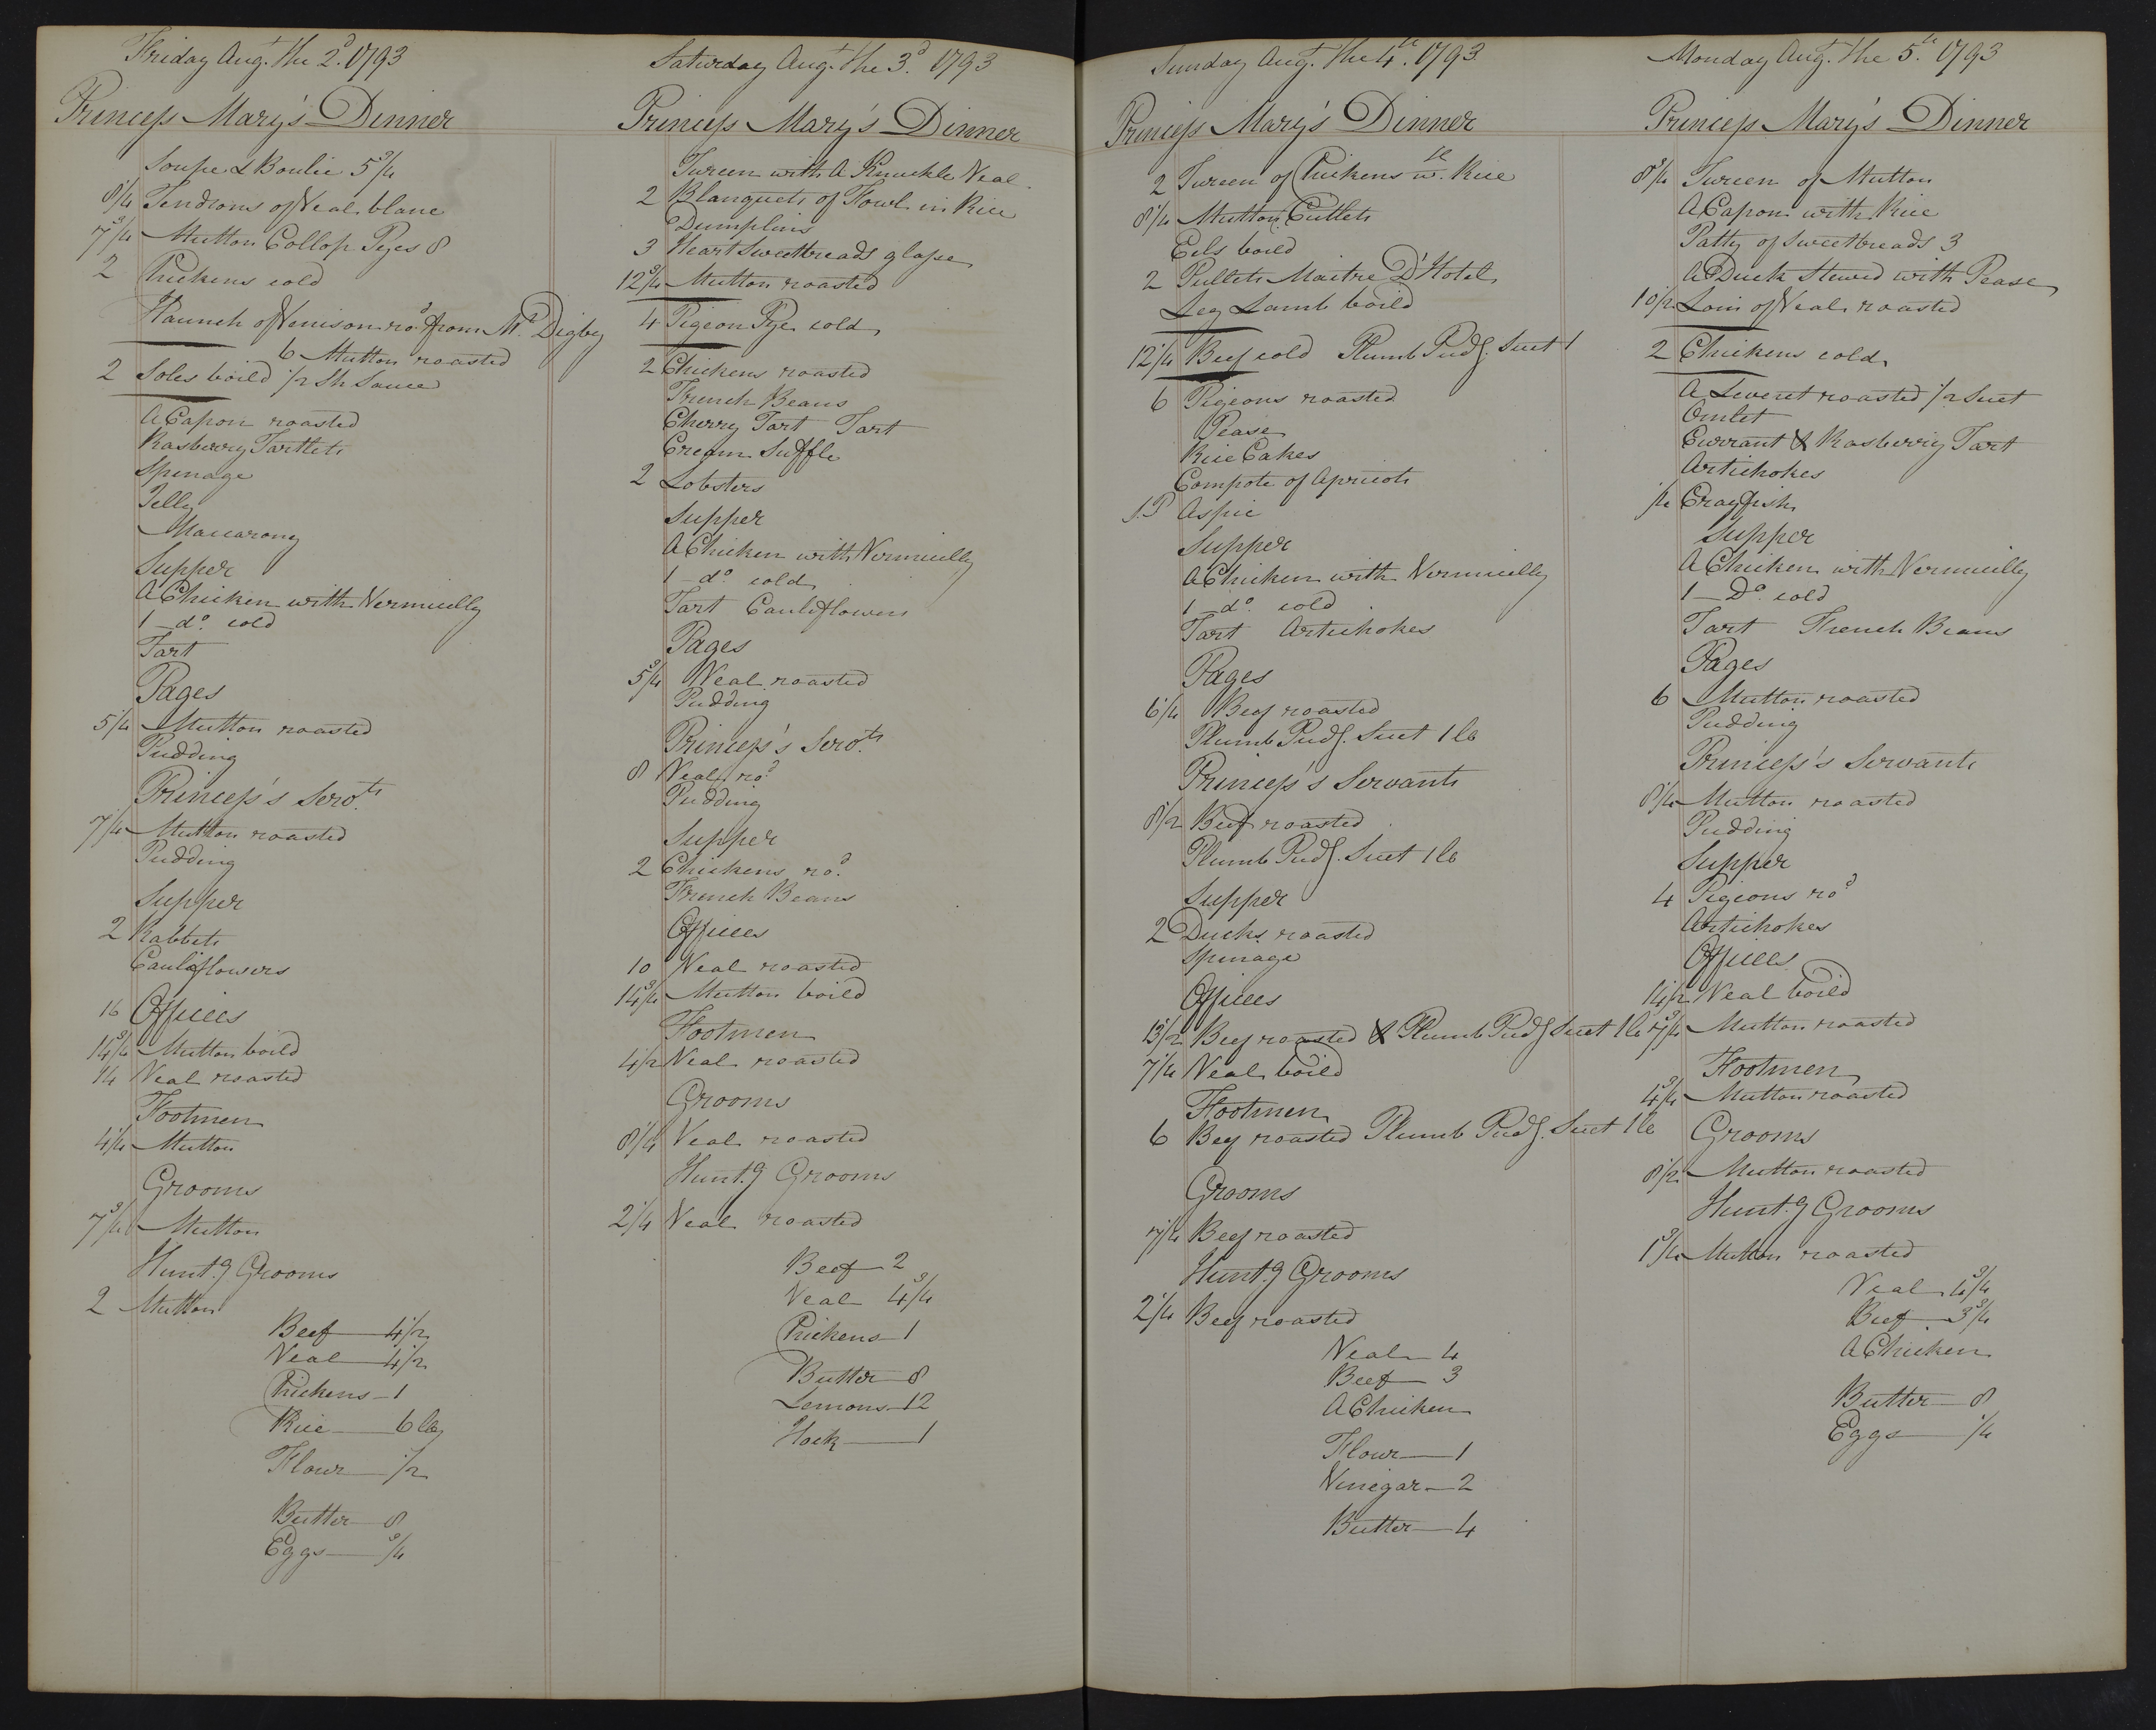 Friday Augt. the 2d. 1793
Princess Mary's Dinner
Soupe & Boulie 5 3/4
8 1/4 Tendrons of Veal blanc
7 3/4 Mutton Collop Pyes 8
2 Chickens cold
Haunch of Venison rod. from Mr. Digby
6 Mutton roasted
2 Soles boild 1/2 Sh Sauce
A Capon roasted
Rasberry Tartlets
Spinage
Jelly
Maccarony
Supper
A Chicken with Vermicelly
1 - do. cold
Tart
Pages
5 1/4 Mutton roasted
Pudding
Princess's Servts.
7 1/4 Mutton roasted
Pudding
Supper
2 Rabbets
Cauliflowers
16 Offices
14 3/4 Mutton boild
14 Veal roasted
Footmen
4 1/4 Mutton
Grooms
7 3/4 Mutton
Hunt.g Grooms
2 Mutton
Beef - 4 1/2
Veal - 4 1/2
Chickens - 1
Rice - 6 lb
Flour - 1/2
Butter - 8
Eggs - 3/4
Saturday Augt. the 3d. 1793
Princess Mary's Dinner
Tureen with A Knuckle Veal
2 Blanquets of Fowl in Rice
Dumplins
3 Heart Sweetbreads glasse
12 3/4 Mutton roasted
4 Pigeon Pye cold
2 Chickens roasted
French Beans
Cherry Tart Tart
Cream Suffle
2 Lobsters
Supper
A Chicken with Vermicelly
1 - do. cold
Tart Cauliflowers
Pages
5 3/4 Veal roasted
Pudding
Princess's Servts.
8 Veal rod.
Pudding
Supper
2 Chickens rod.
French Beans
Offices
10 Veal roasted
14 3/4 Mutton boild
Footmen
4 1/2 Veal roasted
Grooms
8 1/4 Veal roasted
Hunt.g Grooms
2 1/4 Veal roasted
Beef - 2
Veal - 4 3/4
Chickens - 1
Butter - 8
Lemons - 12
Hock - 1
Sunday Augt. the 4th. 1793
Princess Mary's Dinner
2 Tureen of Chickens wth. Rice
8 1/4 Mutton Cutlets
Eels boild
2 Pullets Maitre D'Hotel
Leg Lamb boild
12 1/4 Beef cold Plumb Pudg. Suet 1
6 Pigeons roasted
Pease
Rice Cakes
Compote of Apricots
1.P Aspic
Supper
A Chicken with Vermicelly
1 - do. cold
Tart Artichokes
Pages
6 1/4 Beef roasted
Plumb Pudg. Suet 1 lb
Princess's Servants
8 1/2 Beef roasted
Plumb Pudg. Suet 1 lb
Supper
2 Ducks roasted
Spinage
Offices
13 1/2 Beef roasted & Plumb Pudg Suet 1 lb
7 1/4 Veal boild
Footmen
6 Beef roasted Plumb Pudg. Suet 1 lb
Grooms
7 1/4 Beef roasted
Hunt.g Grooms
2 1/4 Beef roasted
Veal - 4
Beef - 3
A Chicken
Flour - 1
Vinegar - 2
Butter - 4
Monday Augt. the 5th. 1793
Princess Mary's Dinner
8 3/4 Tureen of Mutton
A Capon with Rice
Patty of Sweetbreads 3
A Duck Stewed with Pease
10 1/2 Loin of Veal roasted
2 Chickens cold
A Leveret roasted 1/2 Suet
Omlet
Currant & Rasberry Tart
Artichokes
1/4 Crayfish
Supper
A Chicken with Vermicelly
1 - Do. cold
Tart French Beans
Pages
6 Mutton roasted
Pudding
Princess's Servants
8 1/4 Mutton roasted
Pudding
Supper
4 Pigeons rod
Artichokes
Offices
14 1/2 Veal boild
7 3/4 Mutton roasted
Footmen
4 3/4 Mutton roasted
Grooms
8 1/2 Mutton roasted
Hunt.g Grooms
1 3/4 Mutton roasted
Veal - 4 3/4
Beef - 3 3/4
A Chicken
Butter - 8
Eggs - 1/4